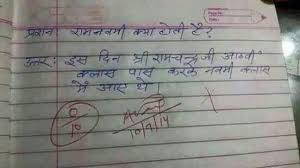 प्रशन: रामनवमी क्या होती है?
उत्तर: इस दिन श्री रामचन्द्र जी आठवी
क्लास पास करके नवमी क्लास
में आए थे।
0/10
10/9/14